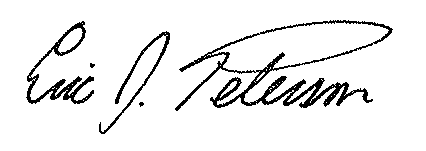 Eric J. Peterson